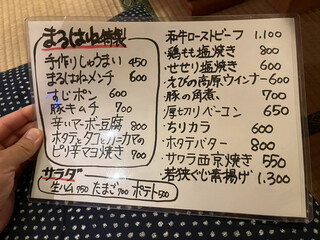 まるはね特製
手作りしゅうまい 450
まるはねメンチ 600
すじポン 600
豚キムチ 700
辛いマーボー豆腐 800
ホタテとタコとカニカマの
ピリ辛マヨ焼き 700
サラダ
生ハム750 たまご700 ポテト500
和牛ローストビーフ 1.100
鶏もも塩焼き 800
せせり塩焼き 600
えびの高原ウインナー600
豚の角煮, 700
厚切りベーコン 650
ちりカラ 600
ホタテバター 800
サワラ西京焼き 550
若狭ぐじ素揚げ 1.300